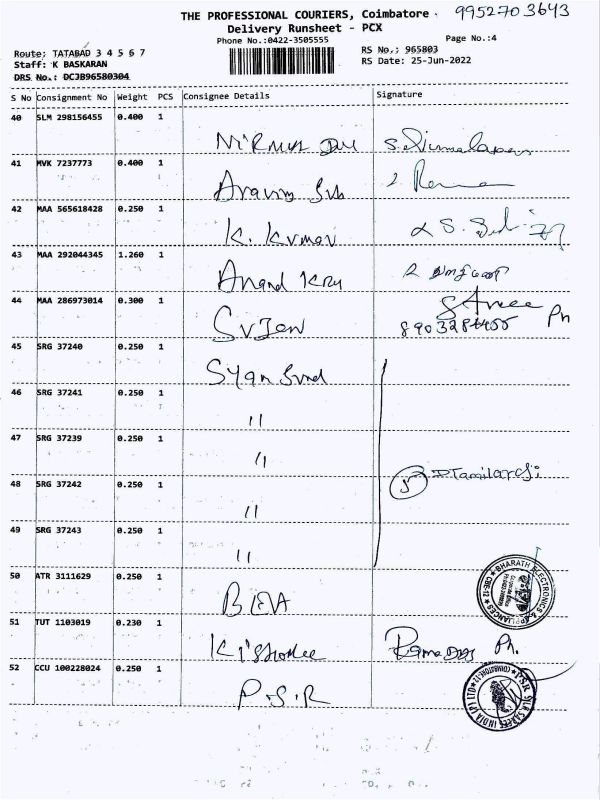 THE PROFESSIONAL COURIERS, Coimbatore. 9952703643
Delivery Runsheet - PCX
Phone No.:0422-3505555 Page No.:4
Route; TATABAD 3 4 5 6 7 RS No.; 965803
Staff: K BASKARAN RS Date: 25-Jun-2022
DRS No.: DCJB96580304
S No Consignment No Weight PCS Consignee Details Signature
40 SLM 298156455 0.400 1
41 MVK 7237773 0.400 1
Aravin
42 MAA 565618428 0.250 1
K. Kumar
43 MAA 292044345 1.260 1
Anand
44 MAA 286973014 0.300 1
Ph
45 SRG 37240 0.250 1
46 SRG 37241 0.250 1
"
47 SRG 37239 0.250 1
"
48 SRG 37242 0.250 1
5
"
49 SRG 37243 0.250 1
"
50 ATR 3111629 0.250 1
BHARATH ELECTRONICS & APPLIANCES CBE-12
51 TUT 1103019 0.230 1
Ph.
52 CCU 100228024 0.250 1
P.S.R
PSR SILK SAREES INDIA (P) LTD